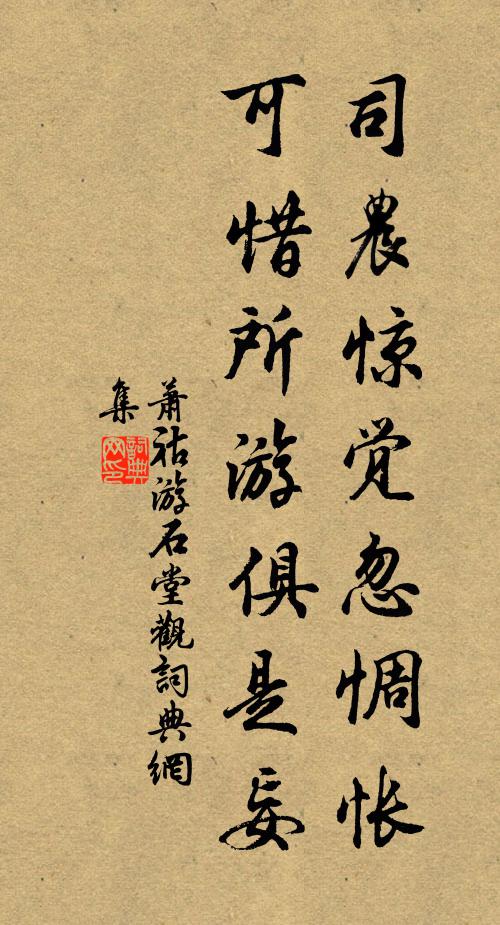 司農惊觉忽惆怅
可惜所游俱是妄
萧祜游石堂觀詞典網
集
詞典网印